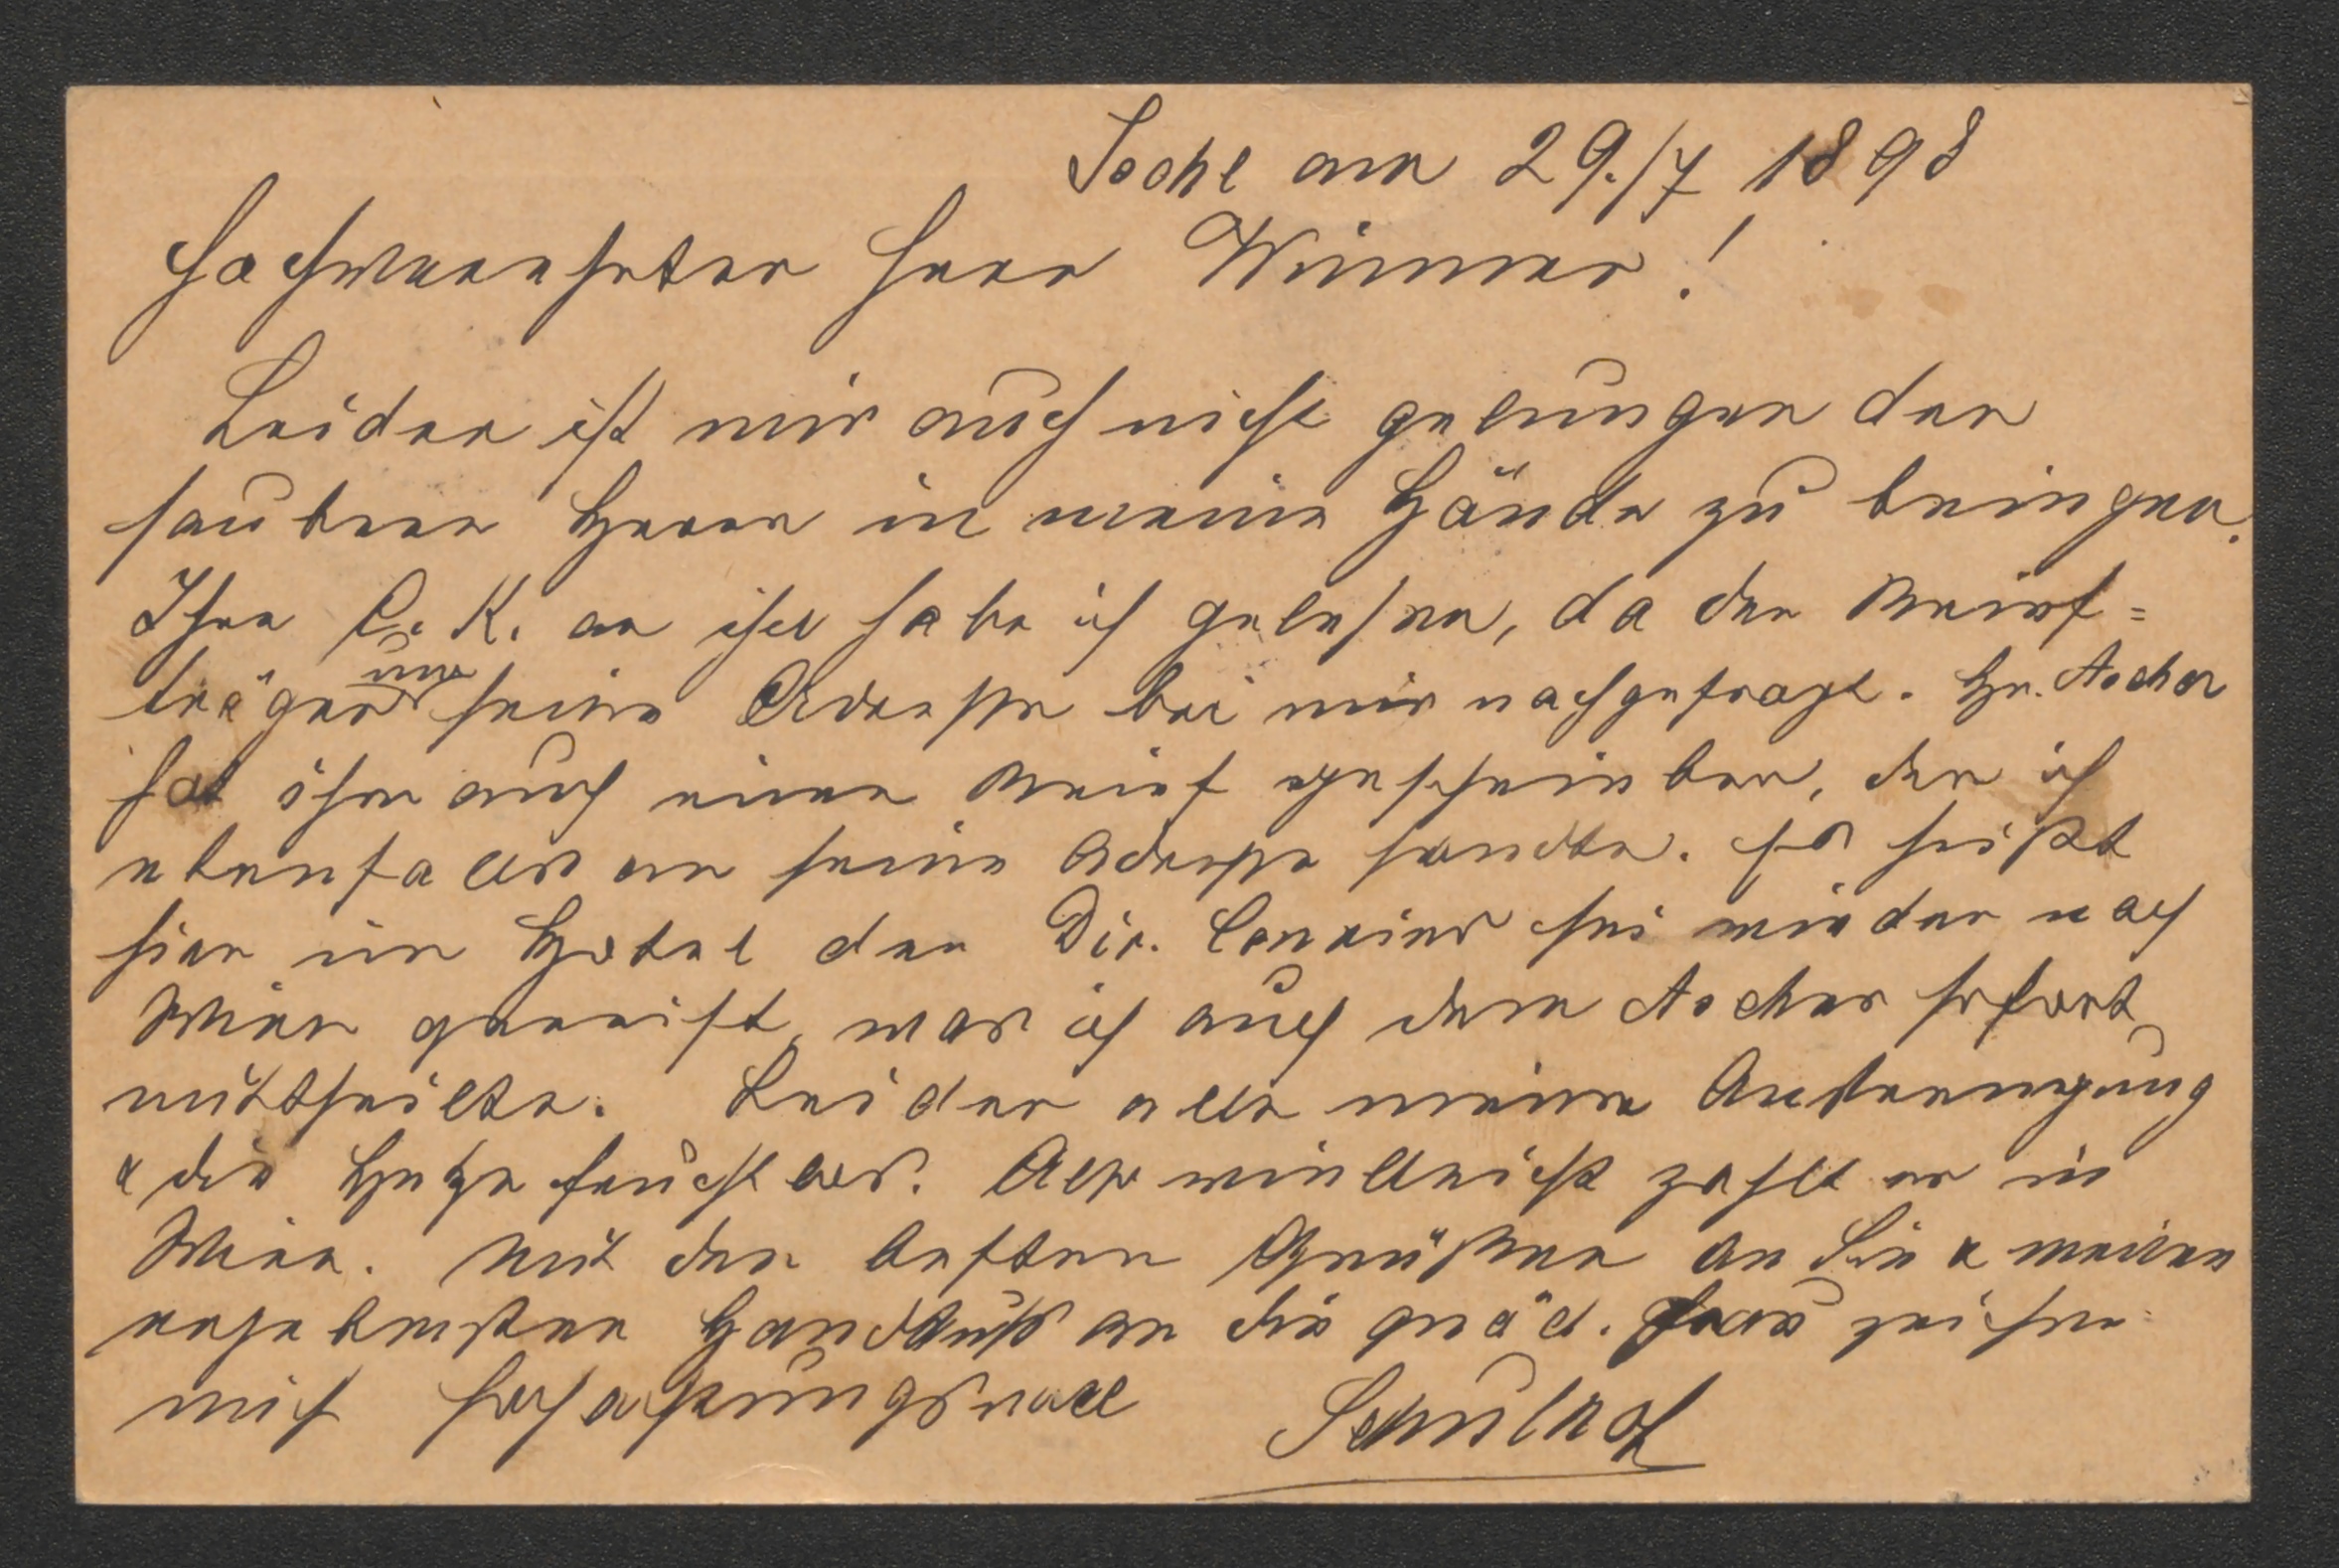 Ischl am 29./7 1898
Hochverehrter Herr Wimmer!
Leider ist mir auch nicht gelungen den
sauberen Herrn in meine Hände zu bringen.
Ihre C. K. an ihn habe ich gelesen, da der Brief=
träger um seine Adresse bei mir nachgefragt. Hr. Ascher
hat ihm auch einen Brief geschrieben, den ich
ebenfalls an seine Adresse sandte. Es heißt
hier im Hotel der Dir. sei wieder nach
Wien gereist, was ich auch dem Ascher sofort
mittheilte. Leider alle meine Anstrengung
& die Hetze fruchtlos. Also vielleicht zahlt er in
Wien. Mit den besten Grüßen an Sie & meinen
ergebensten Handkuß an die gnäd. Frau zeichne
mich hochachtungsvoll Schulhof